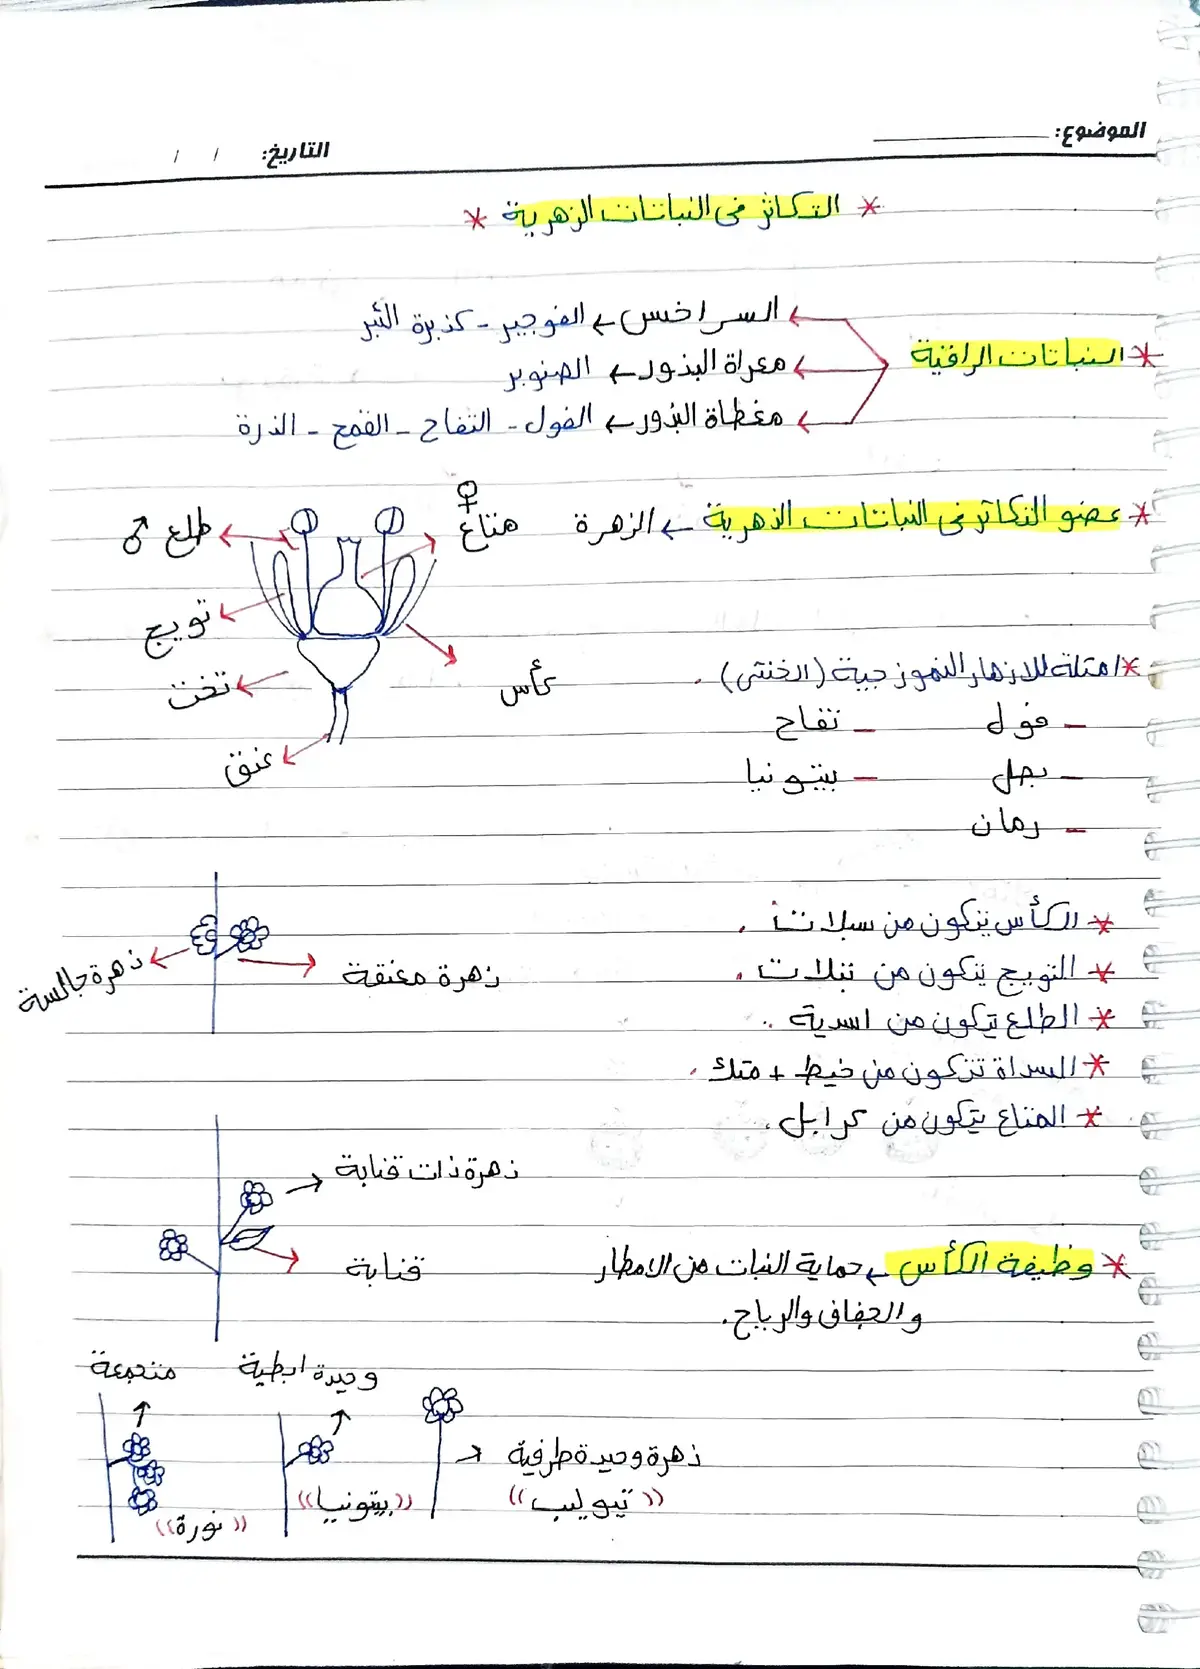 الموضوع:
التاريخ: / /
* التكاثر فى النباتات الزهرية *
* النباتات الراقية
السراخس ← الفوجير - كذبرة البئر
معراة البذور ← الصنوبر
مغطاة البذور ← الفول - التفاح - القمح - الذرة
* عضو التكاثر فى النباتات الزهرية ← الزهرة
♀
متاع
طلع ♂
تويج
تخت
كأس
عنق
* امثلة للازهار النموزجية (الخنثى).
- فول - تفاح
- بصل - بيتونيا
- رمان
* الكأس يتكون من سبلات.
* التويج يتكون من بتلات.
* الطلع يتكون من اسدية.
* السداة تتكون من خيط + متك.
* المتاع يتكون من كرابل.
زهرة جالسة
زهرة معنقة
زهرة ذات قنابة
قنابة
* وظيفة الكأس ← حماية النبات من الامطار
والجفاف والرياح.
زهرة وحيدة طرفية
((تيوليب))
وحيدة ابطية
((بيتونيا))
متجمعة
((نورة))